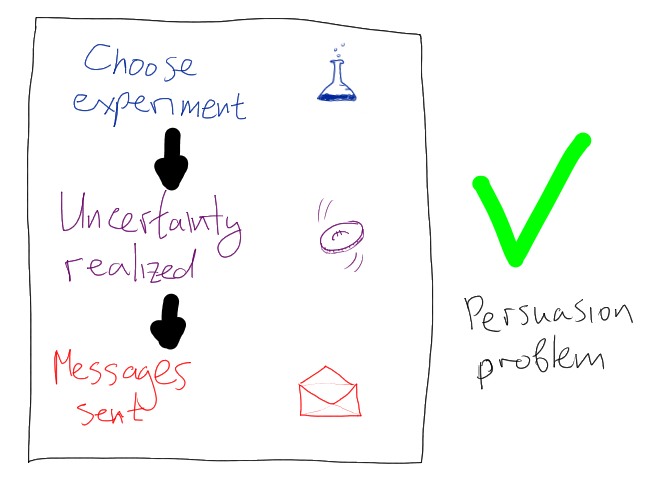 Choose
experiment
Uncertainty
realized
Messages
sent
Persuasion
problem